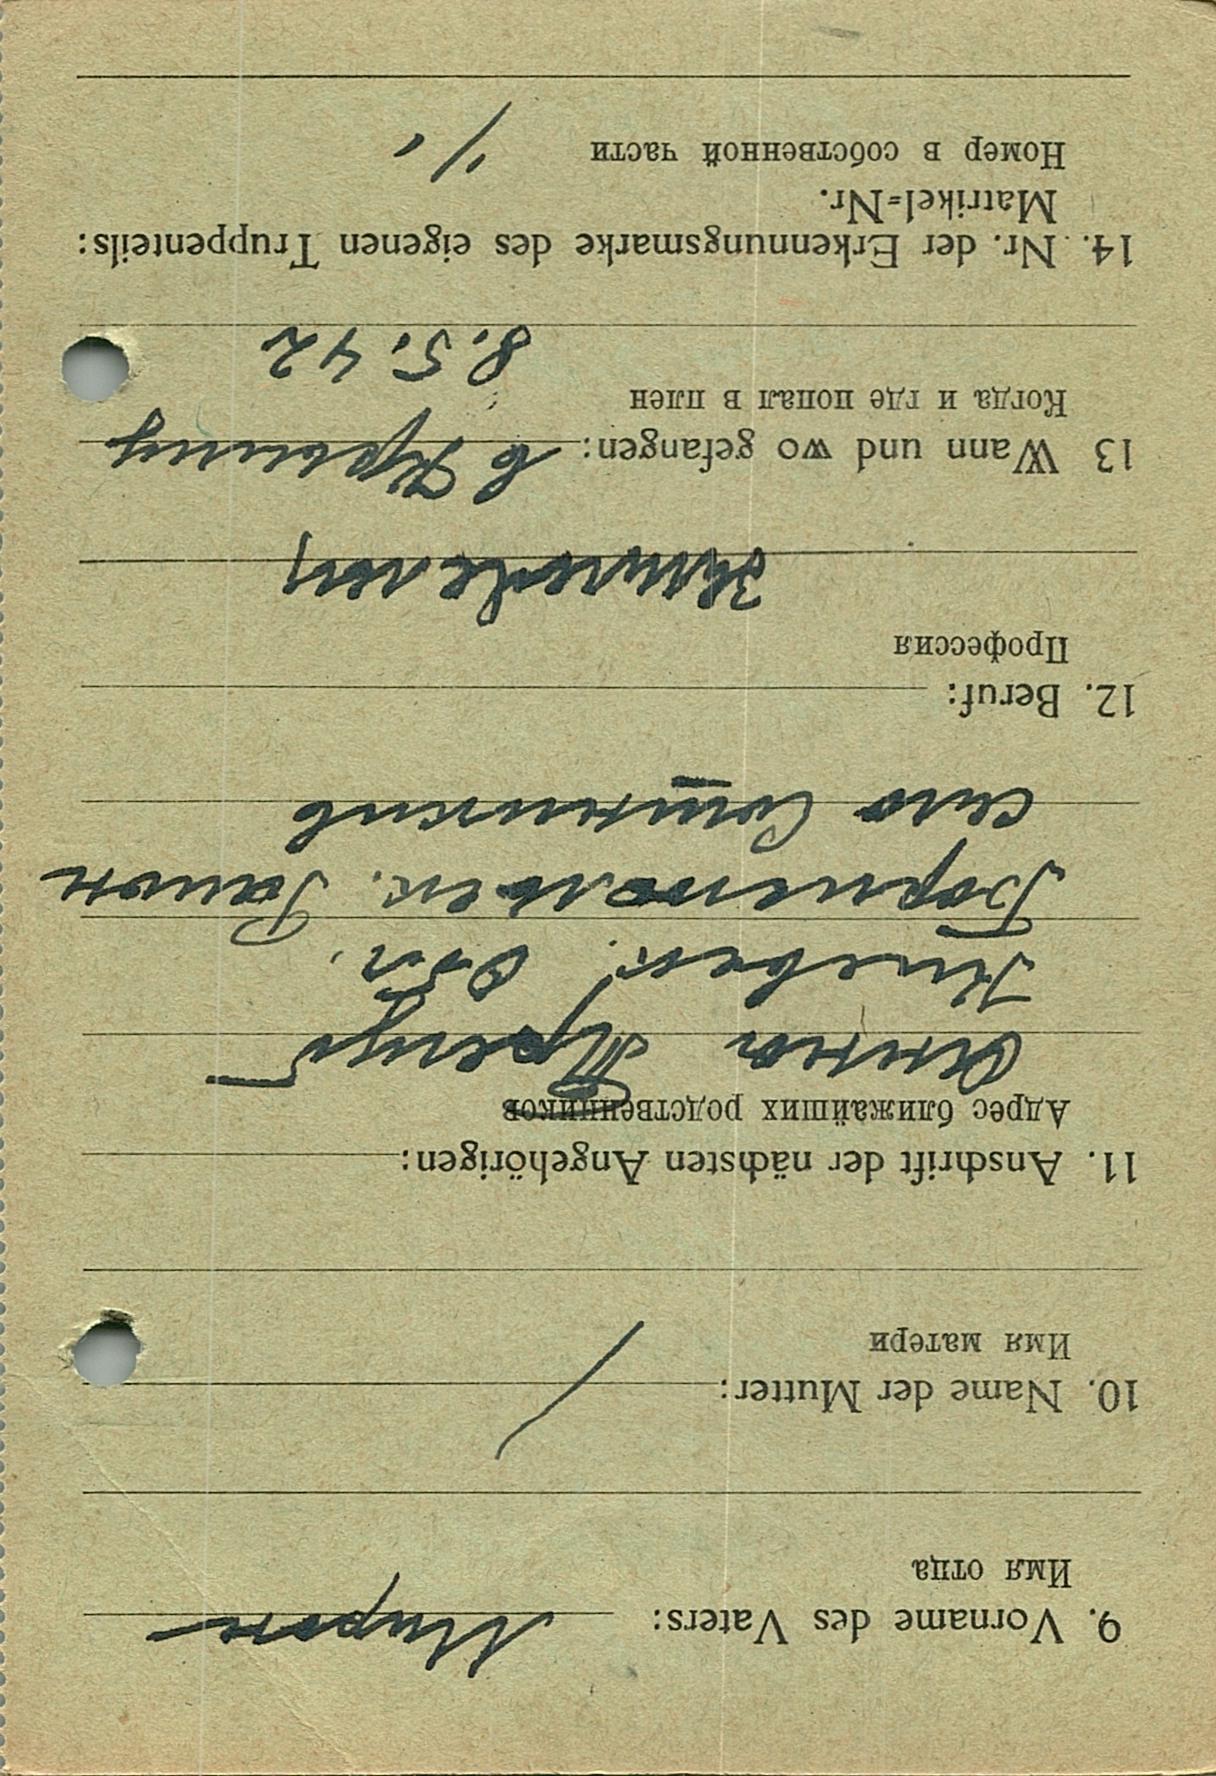 9. Vorname des Vaters: Мирон
Имя отца
10. Name der Mutter: /
Имя матери
11. Anschrift der nächsten Angehörigen:
Адрес ближайших родственников
Анна
Киевск. Обл.
Бориспольск. Район
село
12. Beruf:
Профессия
13 Wann und wo gefangen: в Крыму
Когда и где попал в плен
8.5.42
14. Nr. der Erkennungsmarke des eigenen Truppenteils:
Matrikel=Nr.
Номер в собственной части